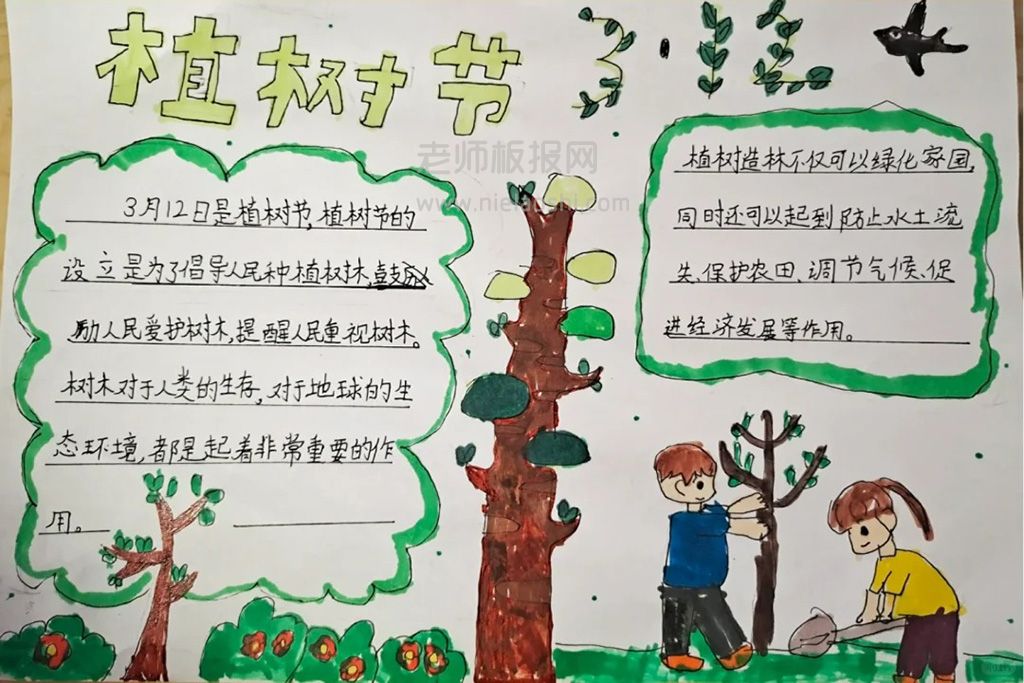 植树节 3.12
老师板报网
3月12日是植树节,植树节的
设立是为了倡导人民种植树木,鼓
励人民爱护树木,提醒人民重视树木。
树木对于人类的生存,对于地球的生
态环境,都是起着非常重要的作
用。
植树造林不仅可以绿化家园,
同时还可以起到防止水土流
失、保护农田、调节气候、促
进经济发展等作用。